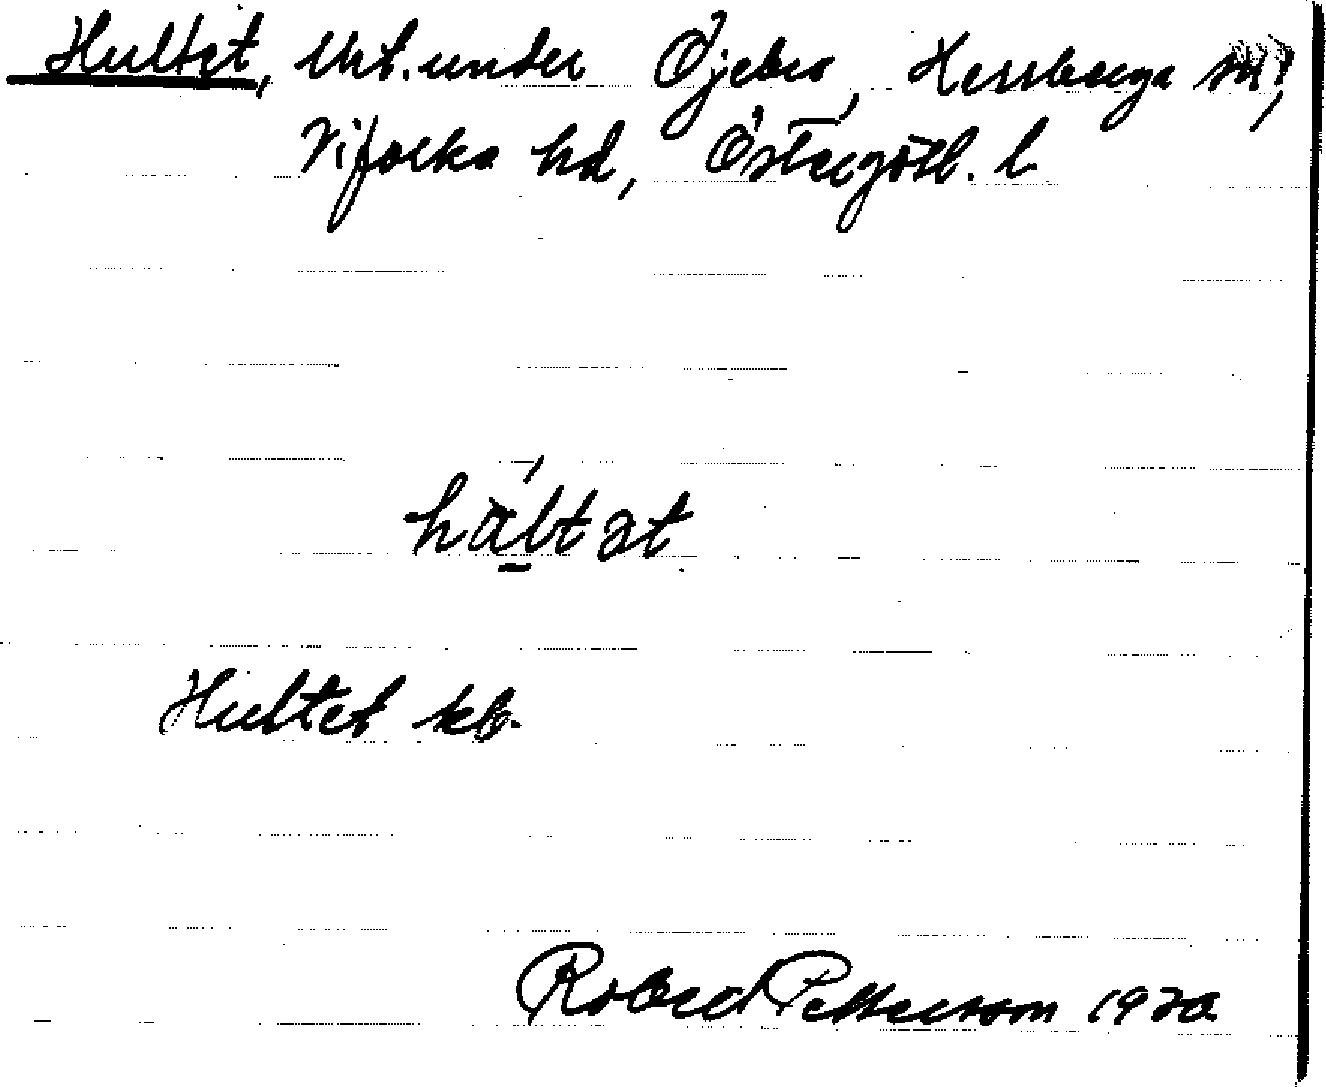 Hultet, Utk. under Öjebro, Herrberga sn,
Vifolka hd, Östergötl. l
háltət
Hultet kb.
Robert Pettersson 1920